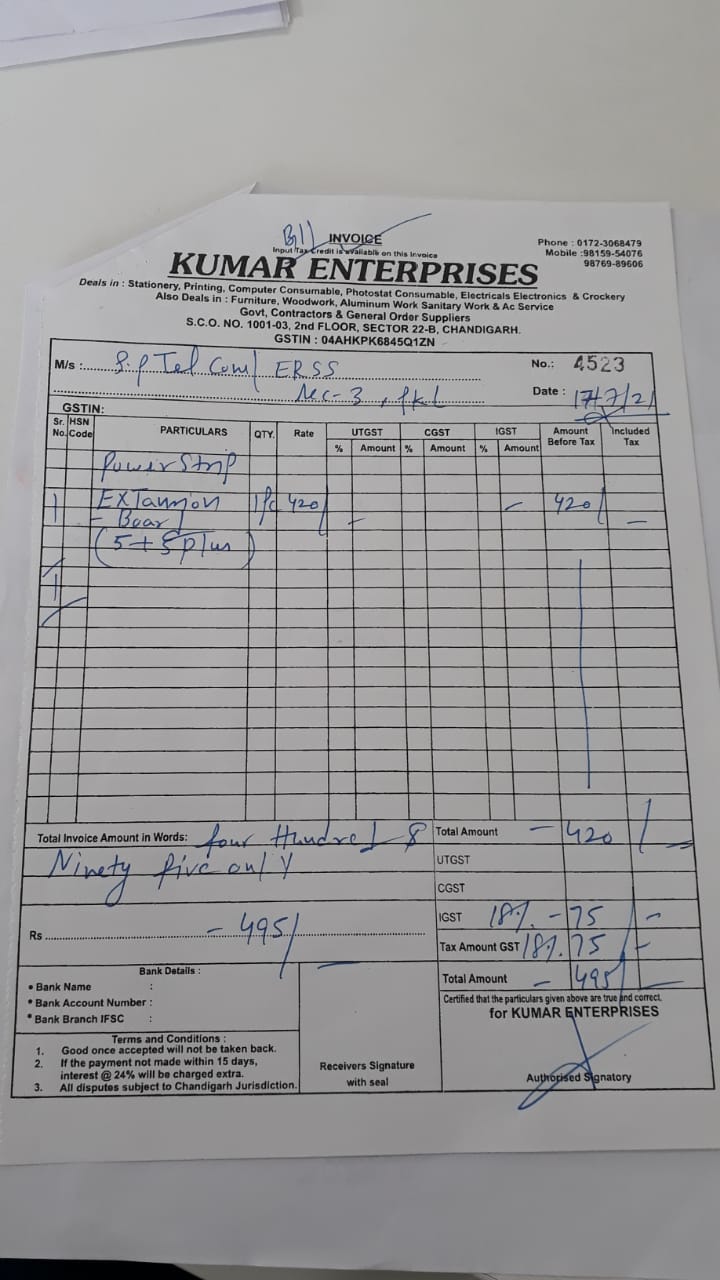 Bill
INVOICE
Input Tax Credit is available on this Invoice
Phone : 0172-3068479
Mobile :98159-54076
98769-89606
KUMAR ENTERPRISES
Deals in : Stationery, Printing, Computer Consumable, Photostat Consumable, Electricals Electronics & Crockery
Also Deals in : Furniture, Woodwork, Aluminum Work Sanitary Work & Ac Service
Govt, Contractors & General Order Suppliers
S.C.O. NO. 1001-03, 2nd FLOOR, SECTOR 22-B, CHANDIGARH.
GSTIN : 04AHKPK6845Q1ZN
M/s : S.P Tel Com/ ERSS No.: 4523
Sec-3, Pkl Date : 17/7/21
GSTIN:
Sr. No. HSN Code PARTICULARS QTY. Rate UTGST CGST IGST Amount Before Tax Included Tax
% Amount % Amount % Amount
Power Strip
1 EXTannion 1Pc 420/ - - 420/ -
- Board
(5+5 Plus)
Total Invoice Amount in Words: four Hundred & Total Amount - 420/-
Ninety five only UTGST
CGST
IGST 18% - 75/-
Rs - 495/ Tax Amount GST 18%. 75/-
Total Amount - 495/-
Bank Details :
• Bank Name :
• Bank Account Number :
• Bank Branch IFSC :
Certified that the particulars given above are true and correct.
for KUMAR ENTERPRISES
Terms and Conditions :
1. Good once accepted will not be taken back.
2. If the payment not made within 15 days,
interest @ 24% will be charged extra.
3. All disputes subject to Chandigarh Jurisdiction.
Receivers Signature
with seal
Authorised Signatory